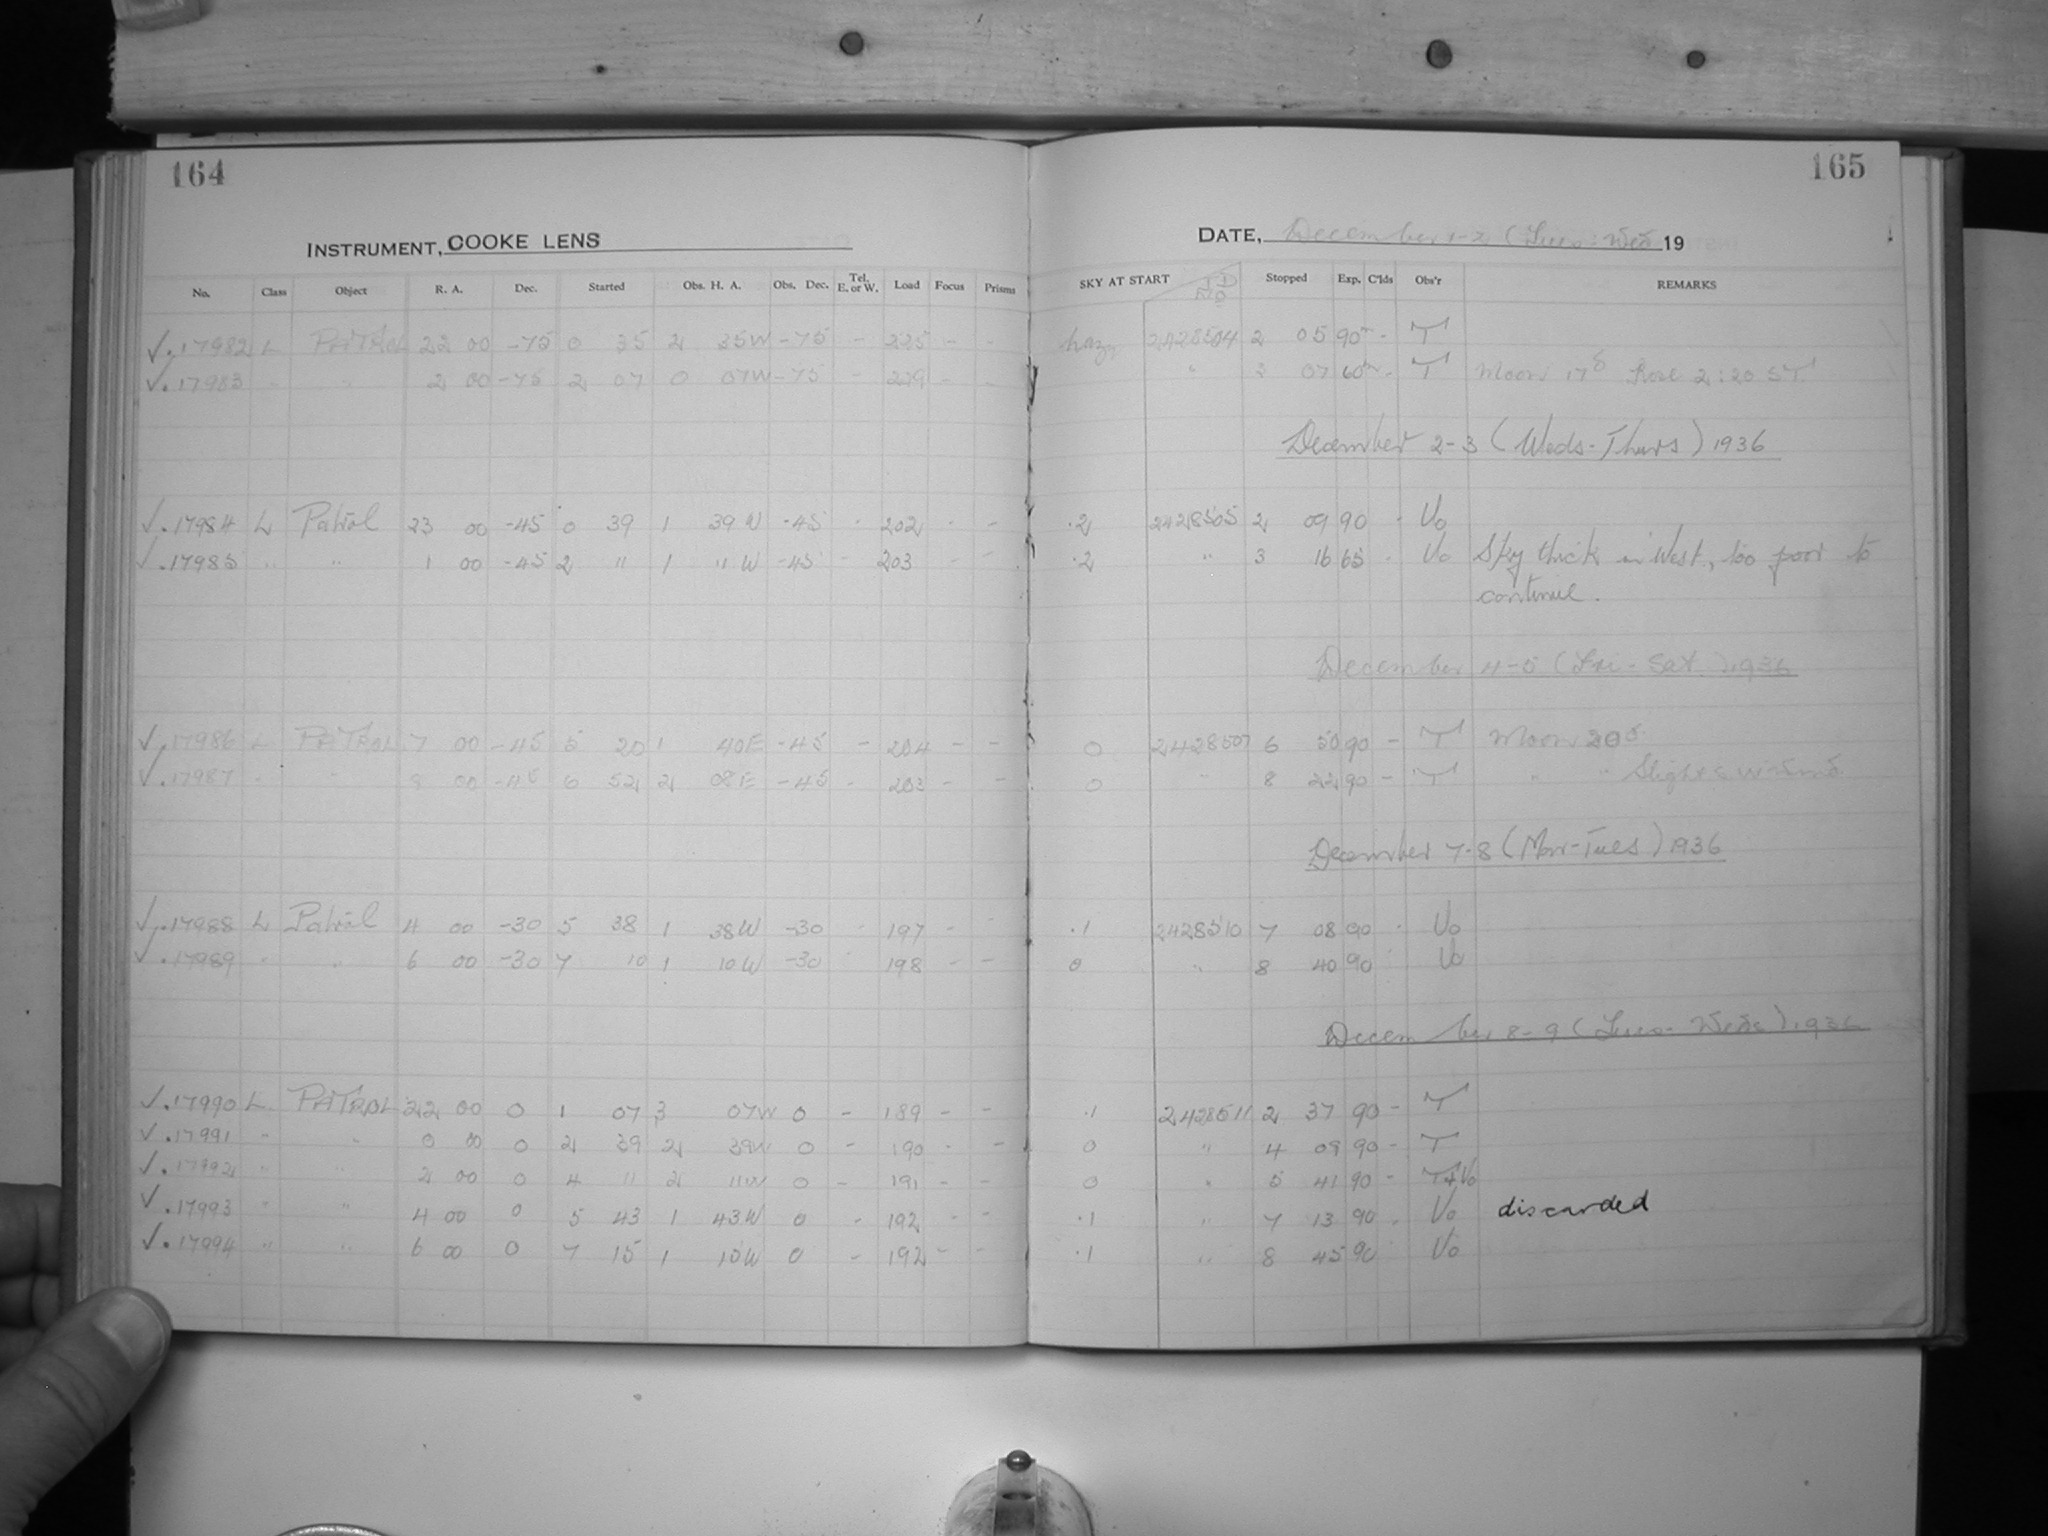 164
165
INSTRUMENT, COOKE LENS
DATE, December 1-2 (Tues-Wed 19
No. Class Object R. A. Dec. Started Obs. H. A. Obs. Dec. Tel. E. or W. Load Focus Prisms SKY AT START J.D. Stopped Exp. C'lds Obs'r REMARKS
√.17982 L PATROL 22 00 -75 0 35 2 35W -75 - 225 - - hazy 2428504 2 05 90 - T
√.17983 " " 2 00 -75 2 07 0 07W -75 - 229 - - " 3 07 60 - T Moon 17d Rose 2:20 ST
December 2-3 (Weds-Thurs) 1936
√.17984 L Patrol 23 00 -45 0 39 1 39W -45 - 202 - - .2 2428505 2 09 90 - Vo
√.17985 " " 1 00 -45 2 11 1 11W -45 - 203 - - .2 " 3 16 65 - Vo Sky thick in West, too poor to
continue.
December 4-5 (Fri-Sat.) 1936
√.17986 L PATROL 7 00 -45 5 20 1 40E -45 - 204 - - 0 2428507 6 50 90 - T Moon 20d
√.17987 " " 9 00 -45 6 52 2 08E -45 - 203 - - 0 " 8 22 90 - T " " Slight S wind
December 7-8 (Mon-Tues) 1936
√.17988 L Patrol 4 00 -30 5 38 1 38W -30 - 197 - - .1 2428510 7 08 90 - Vo
√.17989 " " 6 00 -30 7 10 1 10W -30 - 198 - - 0 " 8 40 90 Vo
December 8-9 (Tues-Weds) 1936
√.17990 L PATROL 22 00 0 1 07 3 07W 0 - 189 - - .1 2428511 2 37 90 - T
√.17991 " " 0 00 0 2 39 2 39W 0 - 190 - - 0 " 4 09 90 - T
√.17992 " " 2 00 0 4 11 2 11W 0 - 191 - - 0 " 5 41 90 - T+Vo
√.17993 " " 4 00 0 5 43 1 43W 0 - 192 - - .1 " 7 13 90 - Vo discarded
√.17994 " " 6 00 0 7 15 1 15W 0 - 192 - - .1 " 8 45 90 Vo